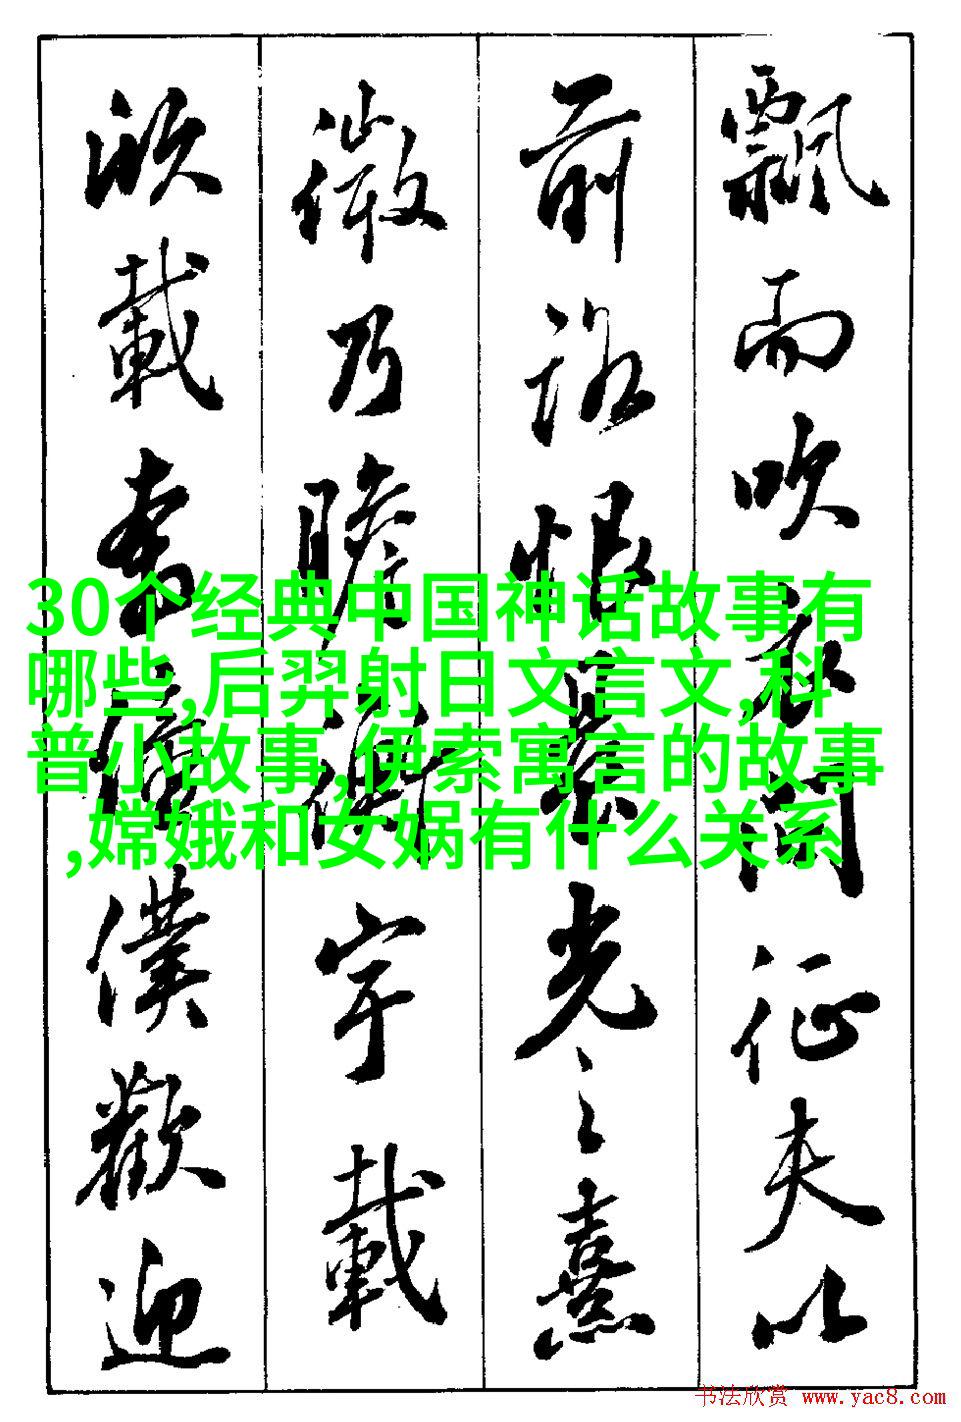 飄而吹衣問征夫以
前路恨晨光之熹
微乃瞻衡宇載
欣載奔僮僕歡迎
30个经典中国神话故事有
哪些,后羿射日文言文,科
普小故事,伊索寓言的故事
,嫦娥和女娲有什么关系
书法欣赏 www.yac8.com